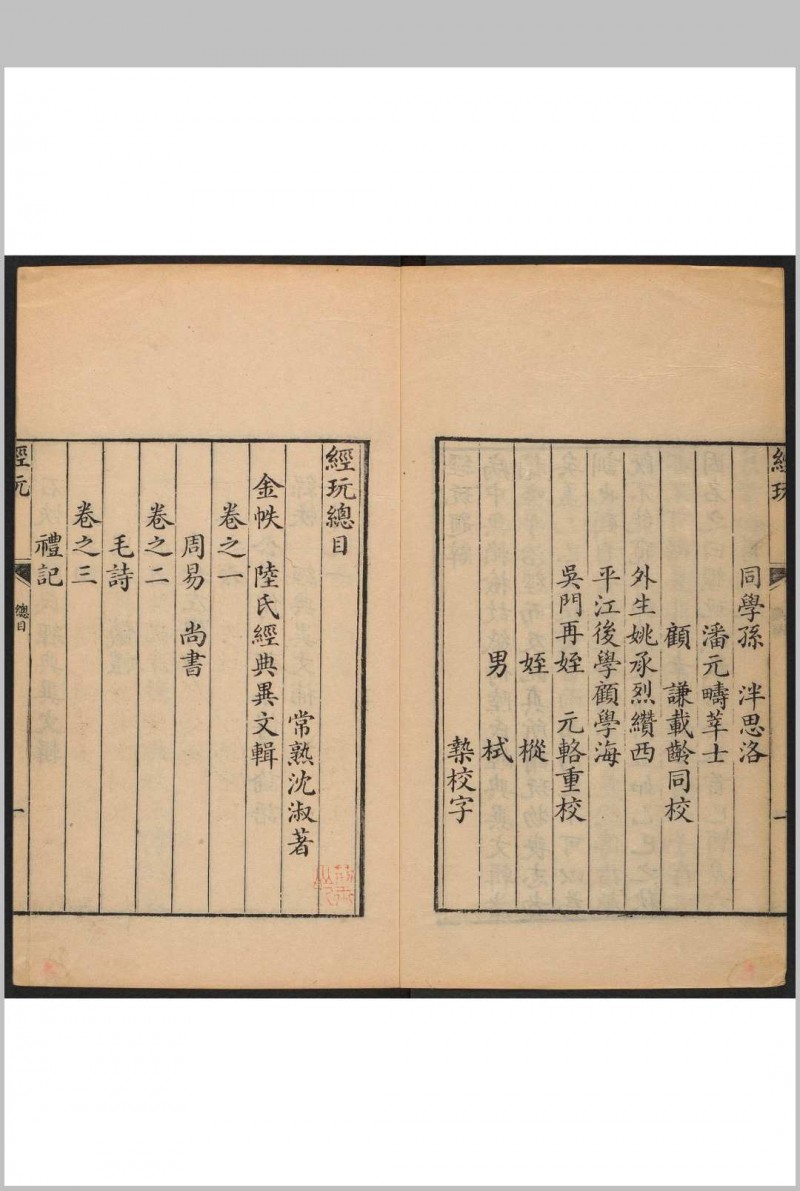 經玩
同學孫 泮思洛
潘元疇莘士
顧 謙載齡同校
外生姚承烈纘西
平江後學顧學海
吳門再姪 元輅重校
姪樅
男栻
槷校字
經玩總目
常熟沈淑著
金帙 陸氏經典異文輯
卷之一
周易 尚書
卷之二
毛詩
卷之三
禮記
經玩
總目
一